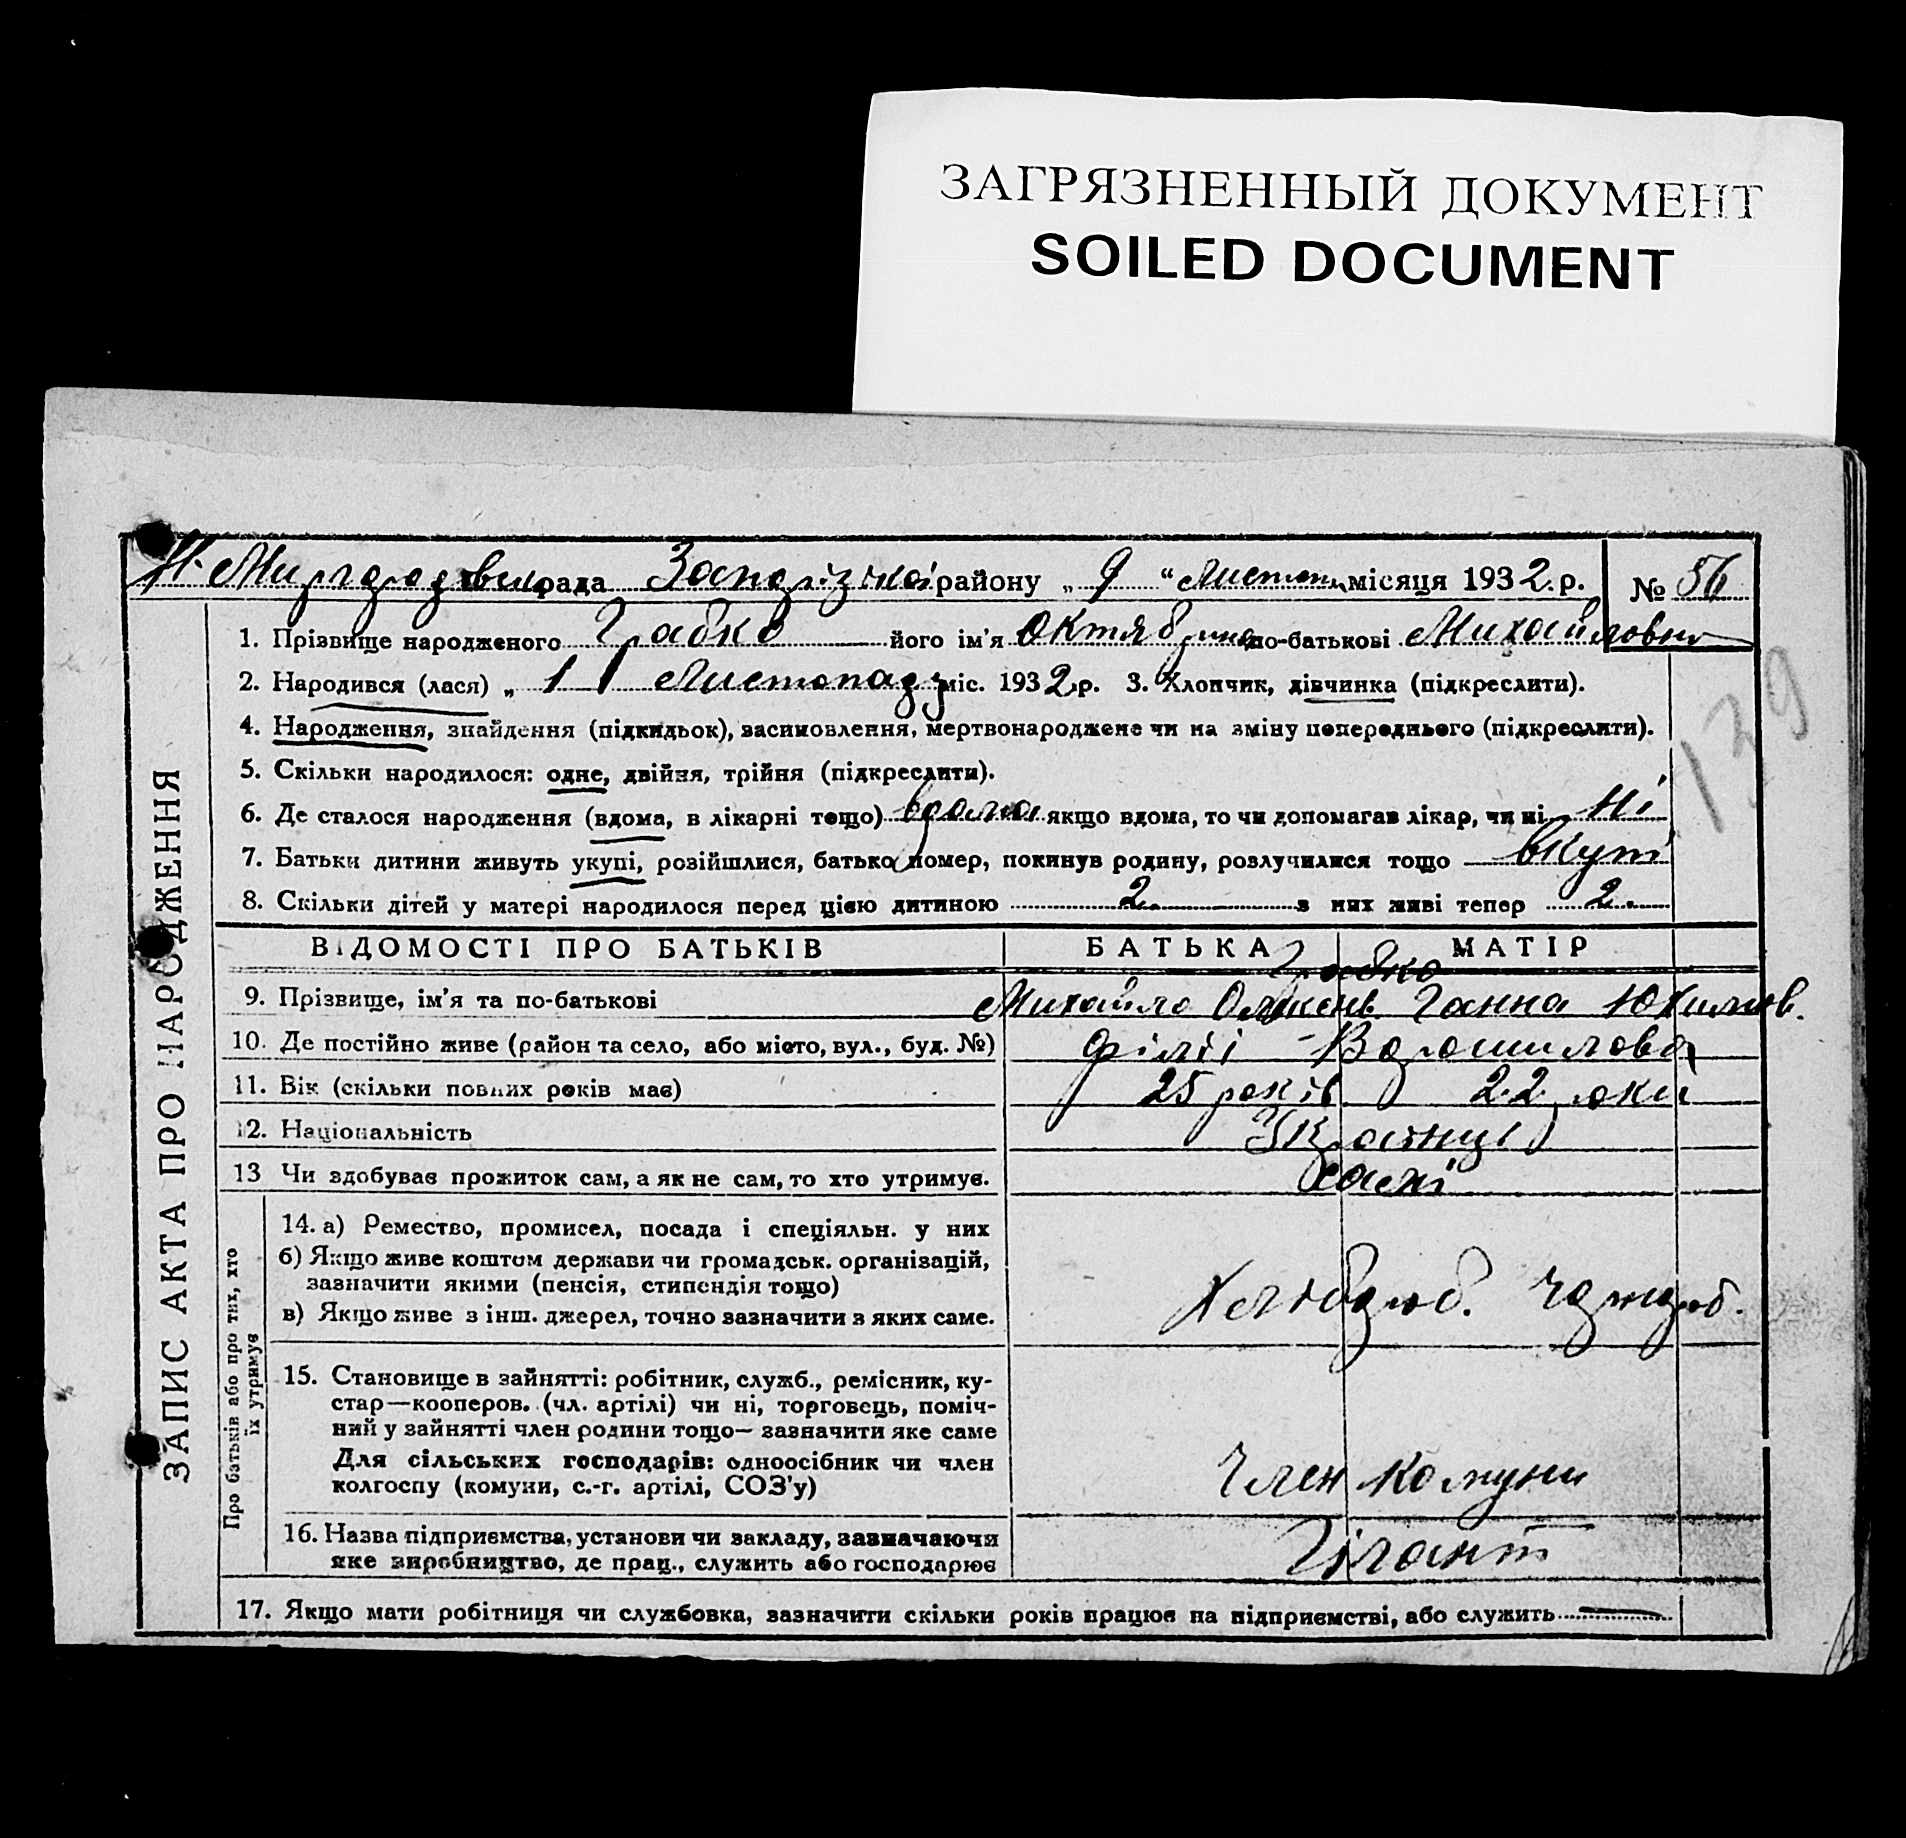 ЗАГРЯЗНЕННЫЙ ДОКУМЕНТ
SOILED DOCUMENT
рада Запорізької району „ 9 “ Листоп. місяця 1932 р. № 56
1. Прізвище народженого Грабко його ім'я Октябрина по-батькові Михайловна
2. Народився (лася) „ 1 Листопаду міс. 1932 р. 3. Хлопчик, дівчинка (підкреслити).
4. Народження, знайдення (підкидьок), засиновлення, мертвонароджене чи на зміну попереднього (підкреслити).
5. Скільки народилося: одне, двійня, трійня (підкреслити).
6. Де сталося народження (вдома, в лікарні тощо) вдома якщо вдома, то чи допомагав лікар, чи ні Ні
7. Батьки дитини живуть укупі, розійшлися, батько помер, покинув родину, розлучилися тощо вкупі
8. Скільки дітей у матері народилося перед цією дитиною 2. з них живі тепер 2.
ВІДОМОСТІ ПРО БАТЬКІВ БАТЬКА МАТІР
Грабко
9. Прізвище, ім'я та по-батькові Михайло Ганна Юхимов.
10. Де постійно живе (район та село, або місто, вул., буд. №) філії Ворошилова
11. Вік (скільки повних років має) 25 років 22 роки
12. Національність Українці
13 Чи здобуває прожиток сам, а як не сам, то хто утримує. самі
14. а) Ремество, промисел, посада і спеціяльн. у них
б) Якщо живе коштом держави чи громадськ. організацій,
зазначити якими (пенсія, стипендія тощо)
в) Якщо живе з інш. джерел, точно зазначити з яких саме.
Хлібороб. Чорнороб.
15. Становище в зайнятті: робітник, служб., ремісник, ку-
стар—кооперов. (чл. артілі) чи ні, торговець, поміч-
ний у зайнятті член родини тощо— зазначити яке саме
Для сільських господарів: одноосібник чи член
колгоспу (комуни, с.-г. артілі, СОЗ'у)
Член комуни
16. Назва підприємства, установи чи закладу, зазначаючи
яке виробництво, де прац., служить або господарює
Гігант
17. Якщо мати робітниця чи службовка, зазначити скільки років працює на підприємстві, або служить —
ЗАПИС АКТА ПРО НАРОДЖЕННЯ
Про батьків або про тих, хто
їх утримує
139